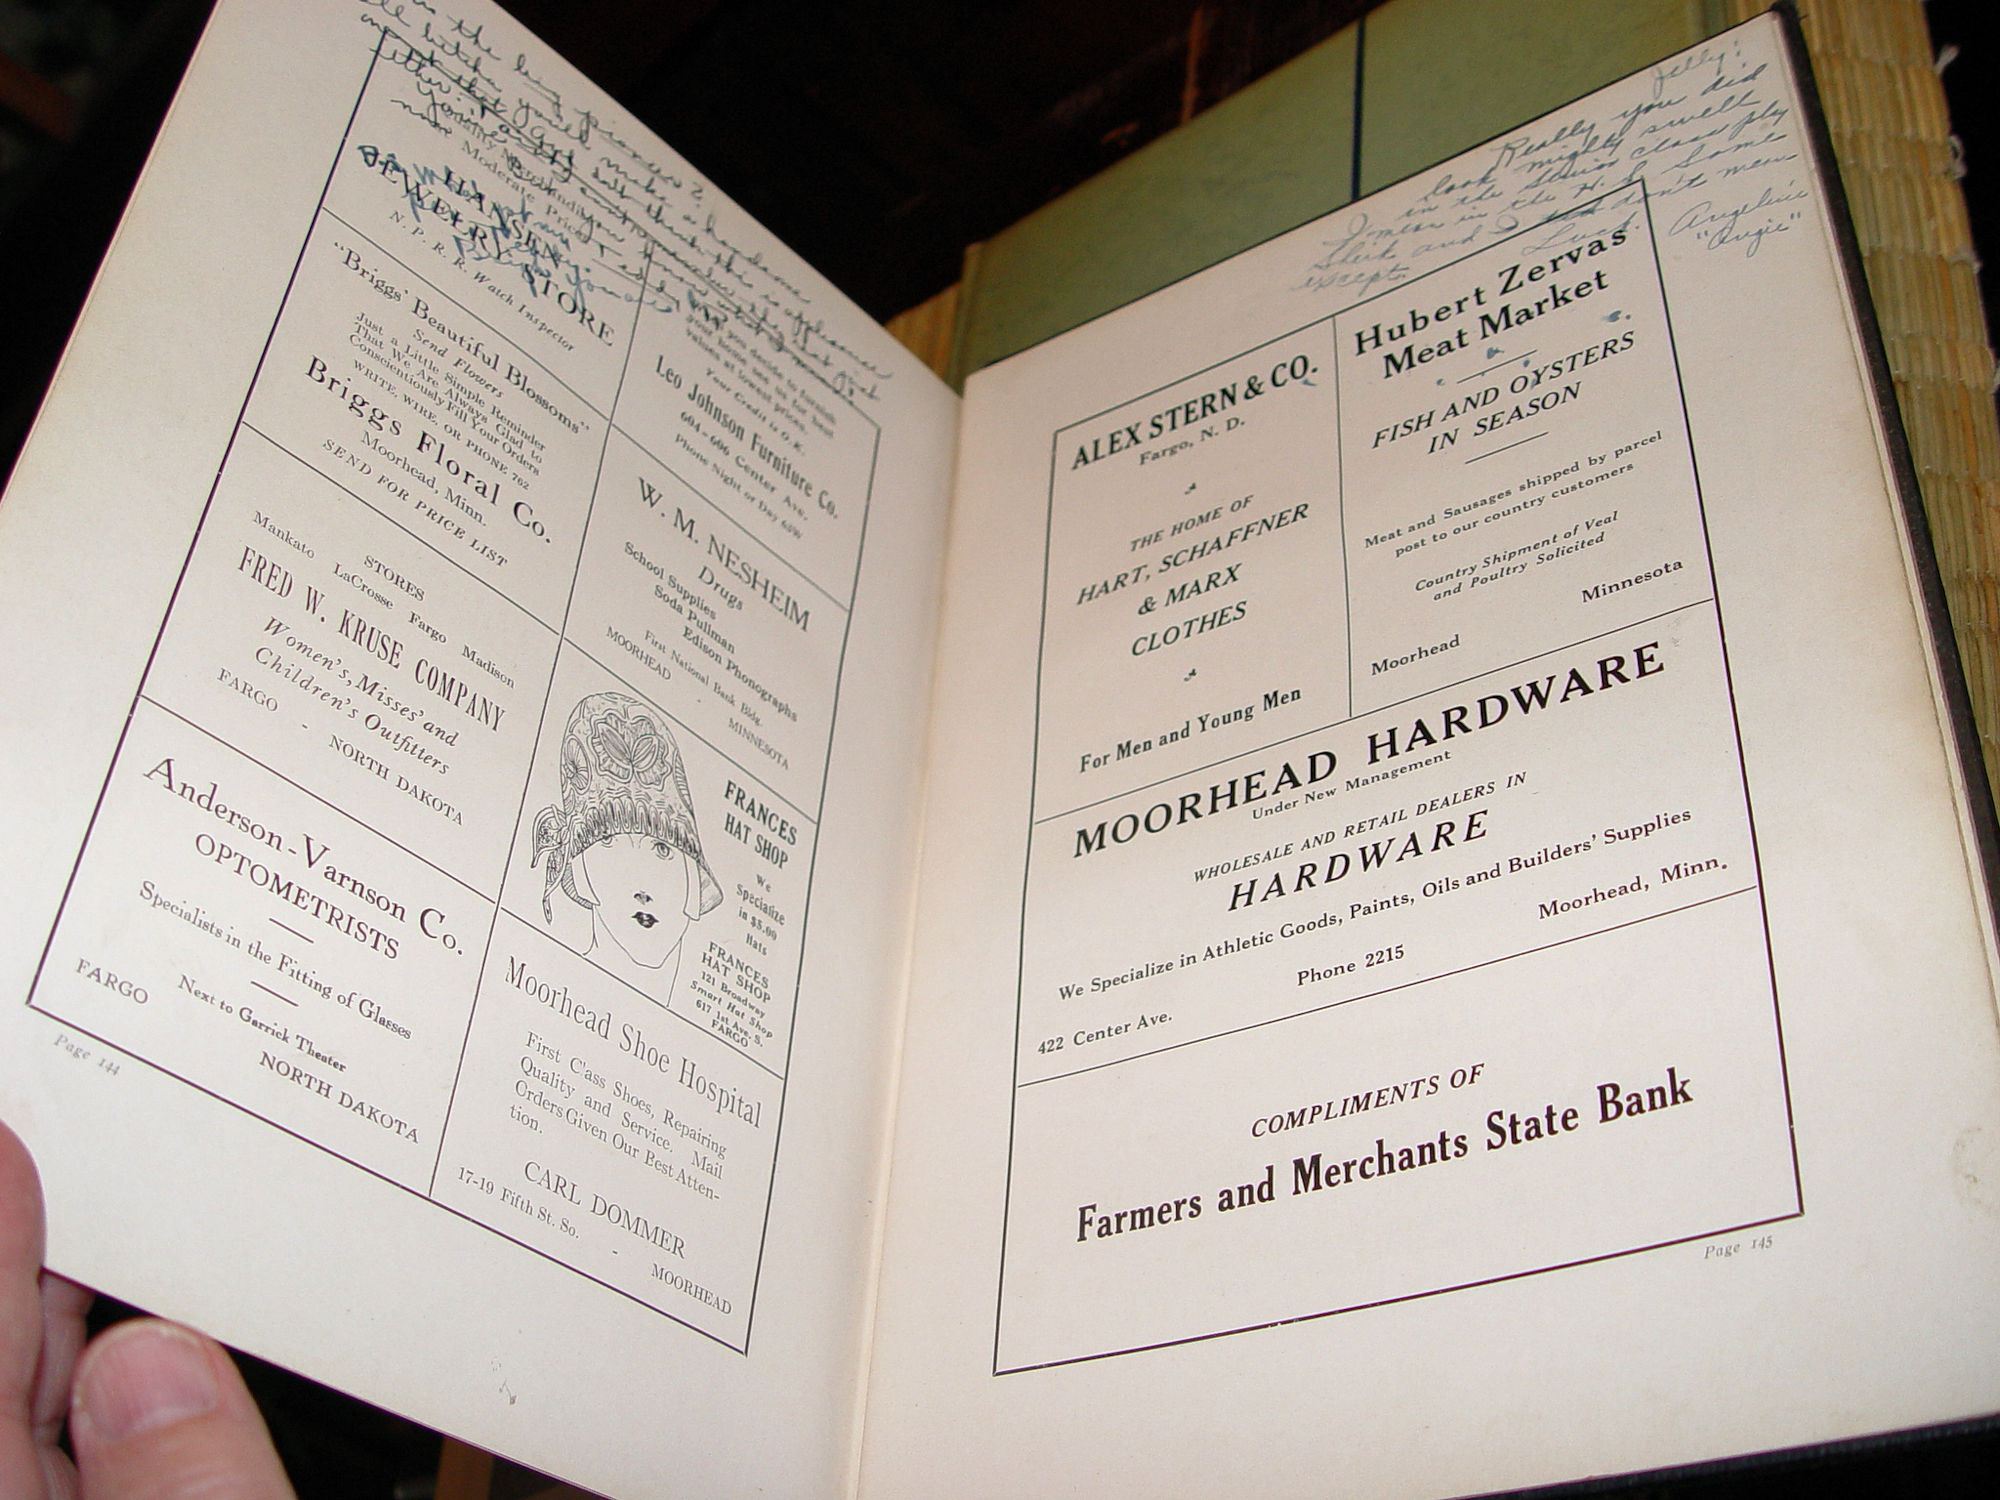 Quality Merchandise
Moderate Prices
HANSEN
JEWELRY STORE
N. P. R. R. Watch Inspector
"Briggs' Beautiful Blossoms"
Send Flowers
Just a Little Simple Reminder
That We Are Always Glad to
Conscientiously Fill Your Orders
WRITE, WIRE, OR PHONE 762
Briggs Floral Co.
Moorhead, Minn.
SEND FOR PRICE LIST
STORES
Mankato LaCrosse Fargo Madison
FRED W. KRUSE COMPANY
Women's, Misses' and
Children's Outfitters
FARGO - NORTH DAKOTA
Anderson-Varnson Co.
OPTOMETRISTS
Specialists in the Fitting of Glasses
Next to Garrick Theater
FARGO NORTH DAKOTA
Page 144
you decide to furnish
your home, see us for best
values at lowest prices.
Your Credit is O. K.
Leo Johnson Furniture Co.
604-606 Center Ave.
Phone Night or Day
W. M. NESHEIM
Drugs
School Supplies
Soda Pullman
Edison Phonographs
First National Bank Bldg.
MOORHEAD - MINNESOTA
FRANCES
HAT SHOP
We
Specialize
in $5.00
Hats
FRANCES
HAT SHOP
121 Broadway
Smart Hat Shop
617 1st Ave. S.
FARGO
Moorhead Shoe Hospital
First C'ass Shoes, Repairing
Quality and Service. Mail
Orders Given Our Best Atten-
tion.
CARL DOMMER
17-19 Fifth St. So. - MOORHEAD
Jelly:
Really you did
look mighty swell
in the Senior Class play
I mean in the H. S. Some
Sheik and I don't mean
except.
Luck.
Angeline
"Angie"
ALEX STERN & CO.
Fargo, N. D.
THE HOME OF
HART, SCHAFFNER
& MARX
CLOTHES
For Men and Young Men
Hubert Zervas
Meat Market
FISH AND OYSTERS
IN SEASON
Meat and Sausages shipped by parcel
post to our country customers
Country Shipment of Veal
and Poultry Solicited
Moorhead Minnesota
MOORHEAD HARDWARE
Under New Management
WHOLESALE AND RETAIL DEALERS IN
HARDWARE
We Specialize in Athletic Goods, Paints, Oils and Builders' Supplies
422 Center Ave. Phone 2215 Moorhead, Minn.
COMPLIMENTS OF
Farmers and Merchants State Bank
Page 145